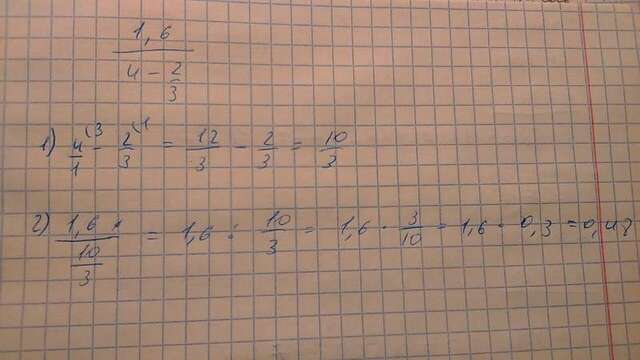 1,6
4 - 2/3
1) 4/1 (3 - 2/3 (1 = 12/3 - 2/3 = 10/3
2) 1,6 / 10/3 = 1,6 : 10/3 = 1,6 · 3/10 = 1,6 · 0,3 = 0,4